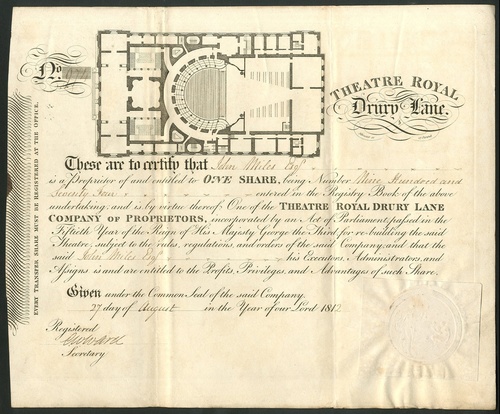 No. 974
THEATRE ROYAL
Drury Lane.
These are to certify that John Miles Esqr
is a Proprietor of and entitled to ONE SHARE, being Number Nine Hundred and
Seventy Four entered in the Registry Book of the above
undertaking: and is by virtue thereof One of the THEATRE ROYAL DRURY LANE
COMPANY OF PROPRIETORS, incorporated by an Act of Parliament, passed in the
Fiftieth Year of the Reign of His Majesty George the Third for re-building the said
Theatre, subject to the rules, regulations, and orders of the said Company; and that the
said John Miles Esqr his Executors, Administrators, and
Assigns is and are entitled to the Profits, Privileges, and Advantages of such Share.
Given under the Common Seal of the said Company.
27 day of August in the Year of our Lord 1812
Registered
Secretary
EVERY TRANSFER SHARE MUST BE REGISTERED AT THE OFFICE.